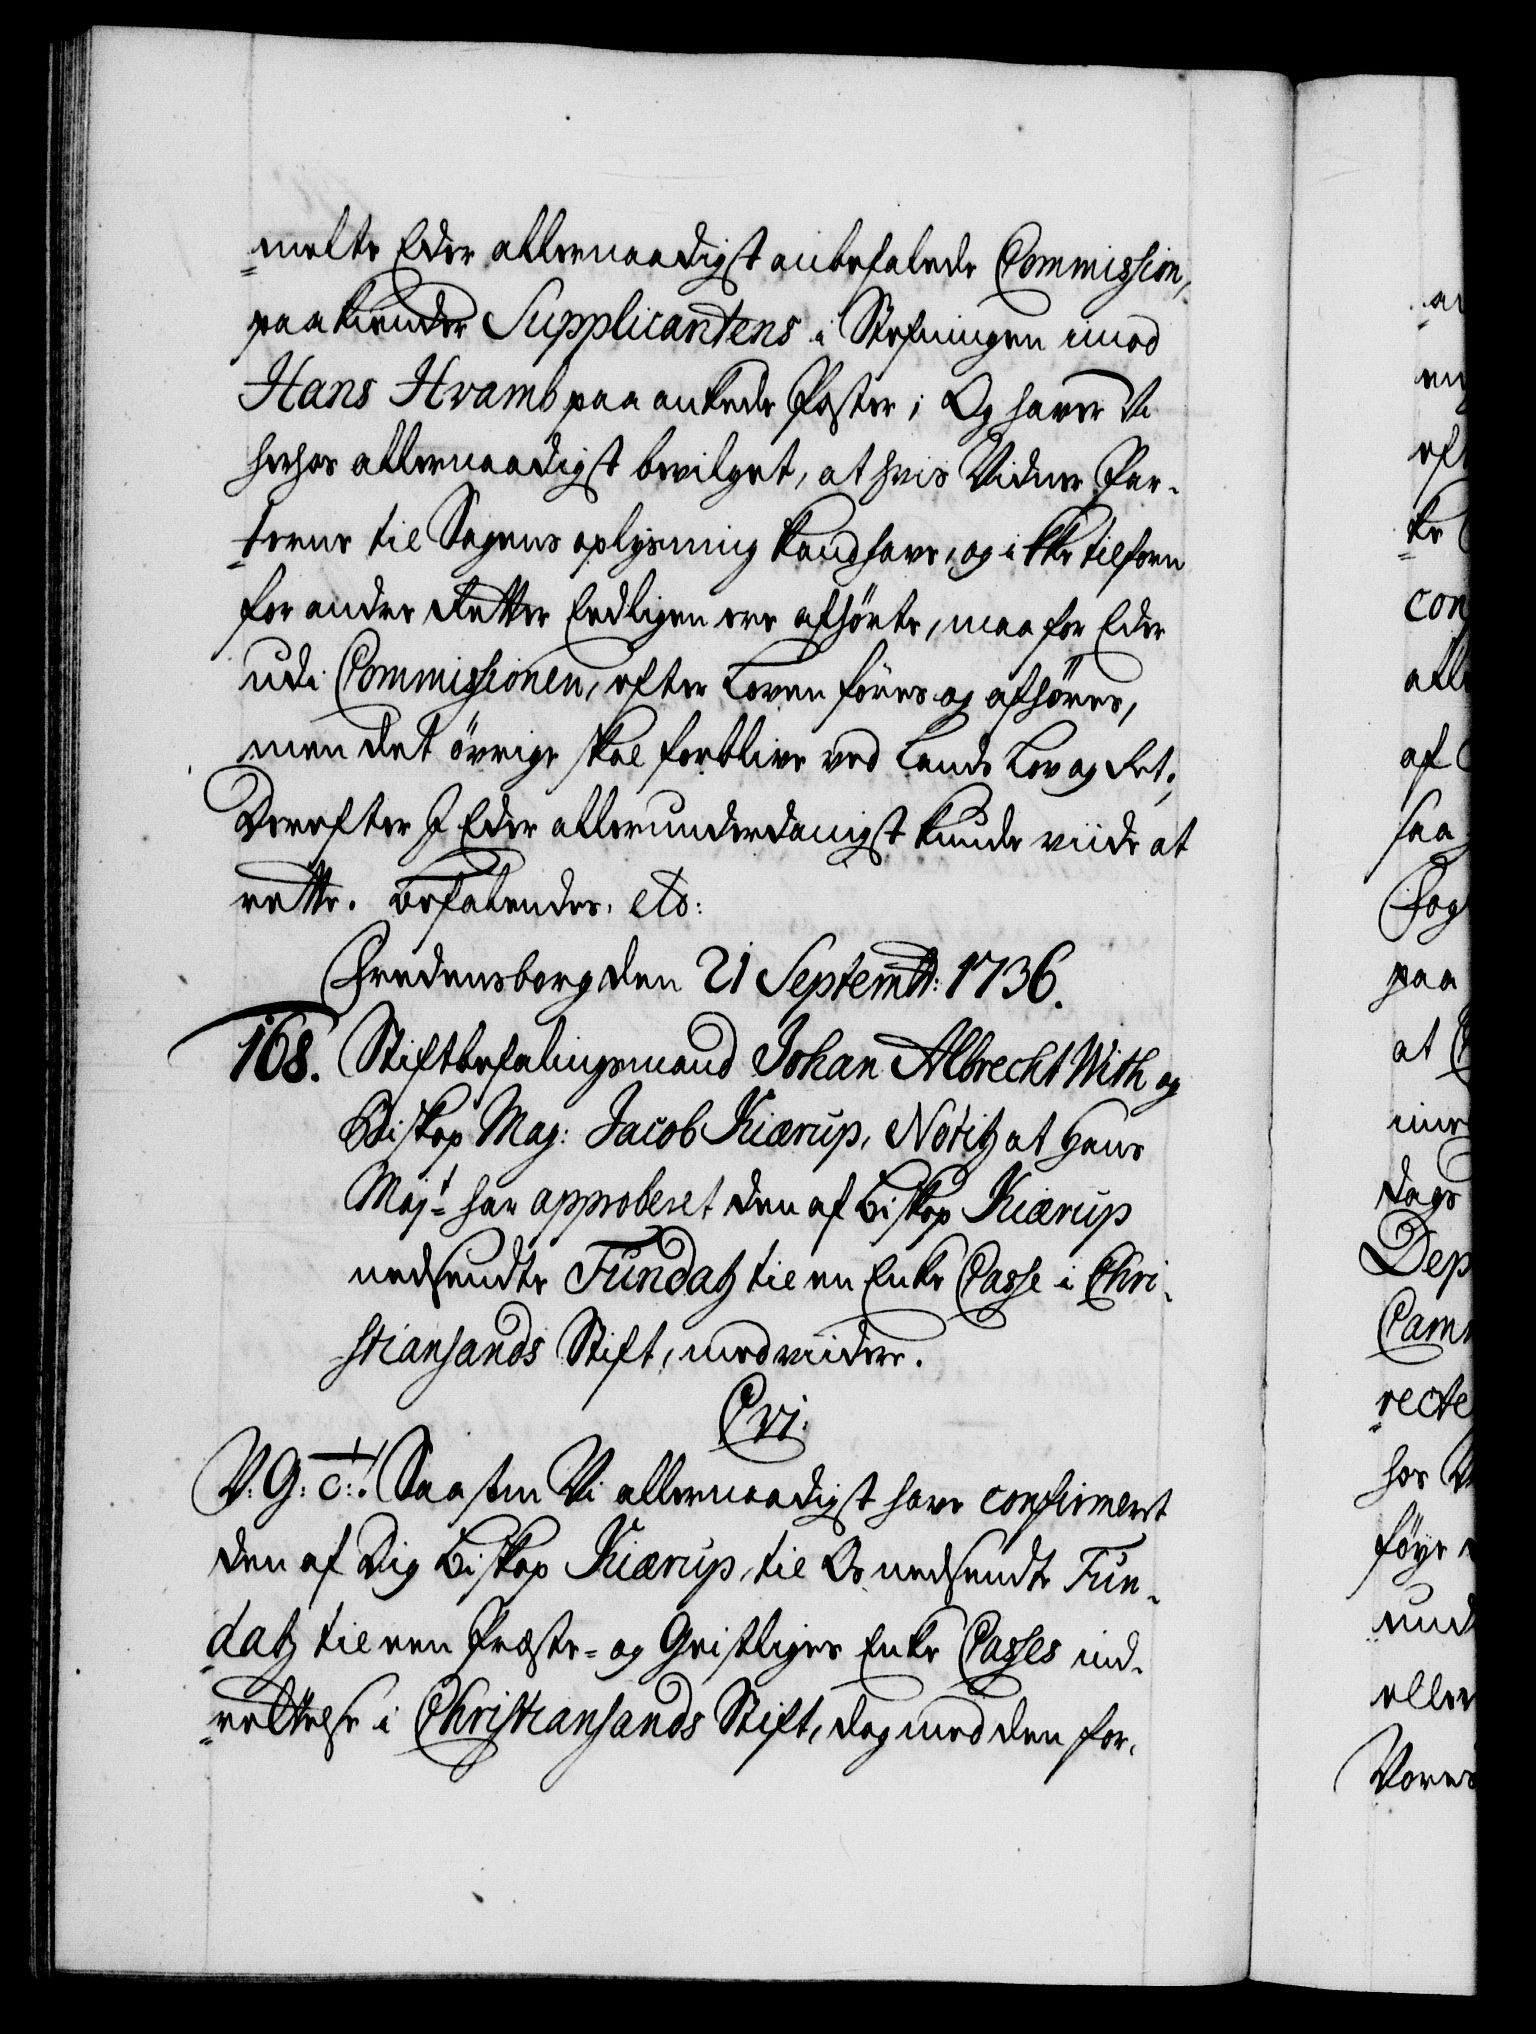 melte Eder allernaadigst anbefalede Commission,
paakiender Supplicantens i Stefningen imod
Hans Hvamb paa ankede Poster; Og haver Vi
herhos allernaadigst bevilget, at hvis Vidner Par-
terne til Sagens oplysning kand have, og ikke tilforn
for andre Retter Eedligen ere afhörte, maa for Eder
udi Commissionen, efter Loven föres og afhöres,
men det övrige skal forblive ved Lands Lov og Ret;
Derefter I Eder allerunderdanigst kunde viide at
rette. Befalendes. etc:
Fredensborg den 21 Septembr: 1736.
168. Stiftbefalingsmand Johan Albrecht With og
Biskop Mag: Jacob Kiærup, Notitz at Hans
Majt: har approberet den af Biskop Kiærup
nedsendte Fundatz til en Enke Casse i Chri-
stiansands Stift, med viidere.
C vi.
V: G: c:. Saasom Vi allernaadigst have confirmeret
den af Dig Biskop Kiærup, til Os nedsendte Fun-
datz til een Præste- og Geistliges Enke Casses ind-
rettelse i Christiansands Stift, dog med den for-
con
af
saa
Fog
paa
at
dags
Dep
Cam
recte
hos
föye
und
eller
Vores